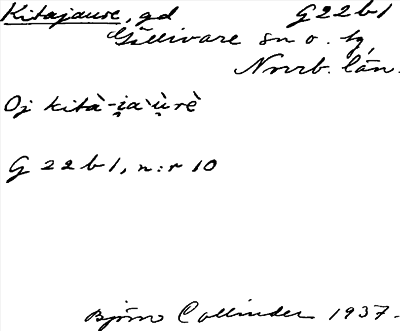 Kitajaure, gd G22b1
Gällivare sn o. tg,
Nnrb. län.
Oj kità-i̯a`ù̯rè
G 22 b 1, n:r 10
Björn Collinder 1937.